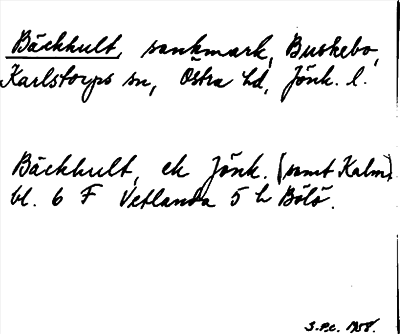 Bäckhult, sankmark, Buskebo,
Karlstorps sn, Östra hd, Jönk. l.
Bäckhult, ek Jönk. (samt Kalm)
bl. 6 F Vetlanda 5 h Bölö.
S.P.C. 1958.